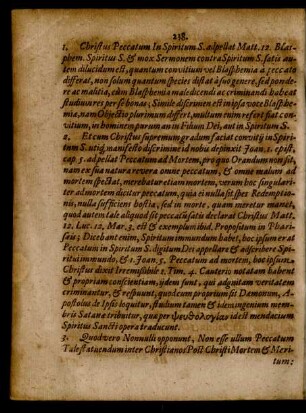 238.
1. Christus Peccatum In Spiritum S. adpellat Matt. 12. Blas-
phem. Spiritus S. & mox Sermonem contra Spiritum S. satis au-
tem dilucidum est, quantum convitium vel Blasphemia a peccato
differat, non solum quantum species distat à suo genere, sed ponde-
re ac malitia, cùm Blasphemia maledicendi ac criminandi habeat
studium res per se bonas; Simile discrimen est in ipsa voce Blasphe-
mia, nam Objectio plurimum differt, multum enim refert fiat con-
vitium, in hominem purum an in Filium Dei, aut in Spiritum S.
2. Et cum Christus supremum gradum faciat convitij in Spiri-
tum S. utiq; manifesto discrimine id nobis depinxit Joan. 1. epist.
cap. 5. adpellat Peccatum ad Mortem, pro quo Orandum non sit,
nam ex sua natura revera omne peccatum, & omne malum ad
mortem spectat, meretur etiam mortem, verùm hoc singulari-
ter ad mortem dicitur peccatum, quia ei nulla sit spes Redemptio-
nis, nulla sufficiens hostia, sed in morte, quam meretur manet,
quod autem tale aliquod sit peccati satis declarat Christus Matt.
12. Luc. 12. Mar. 3. eiÿ & exemplum ibid. Propositum in Phari-
sæis; Dicebant enim, Spiritum immundum habet, hoc ipsum erat
Peccatum in Spiritum S. Spiritum Dei appellare & adscribere Spi-
ritui immundo, & 1. Joan. 5. Peccatum ad mortem, hoc ipsum
Christus dixit Irremissibile 1. Tim. 4. Cauterio notatam habent
& propriam conscientiam, ijdem sunt, qui adgnitam veritatem
criminantur, & respuunt, quodcum proprium sit Dæmonum, A-
postolus de Ipsis loquitur, studium tamen & id enim potius mem-
bris Satanæ tribuitur, qua per ψευδολογίαν id est mendacium
Spiritus Sancti opera traducunt.
3. Quod vero Nonnulli opponunt, Non esse ullum Peccatum
Tale statuendum inter Christianos Post Christi Mortem & Meri-
tum: